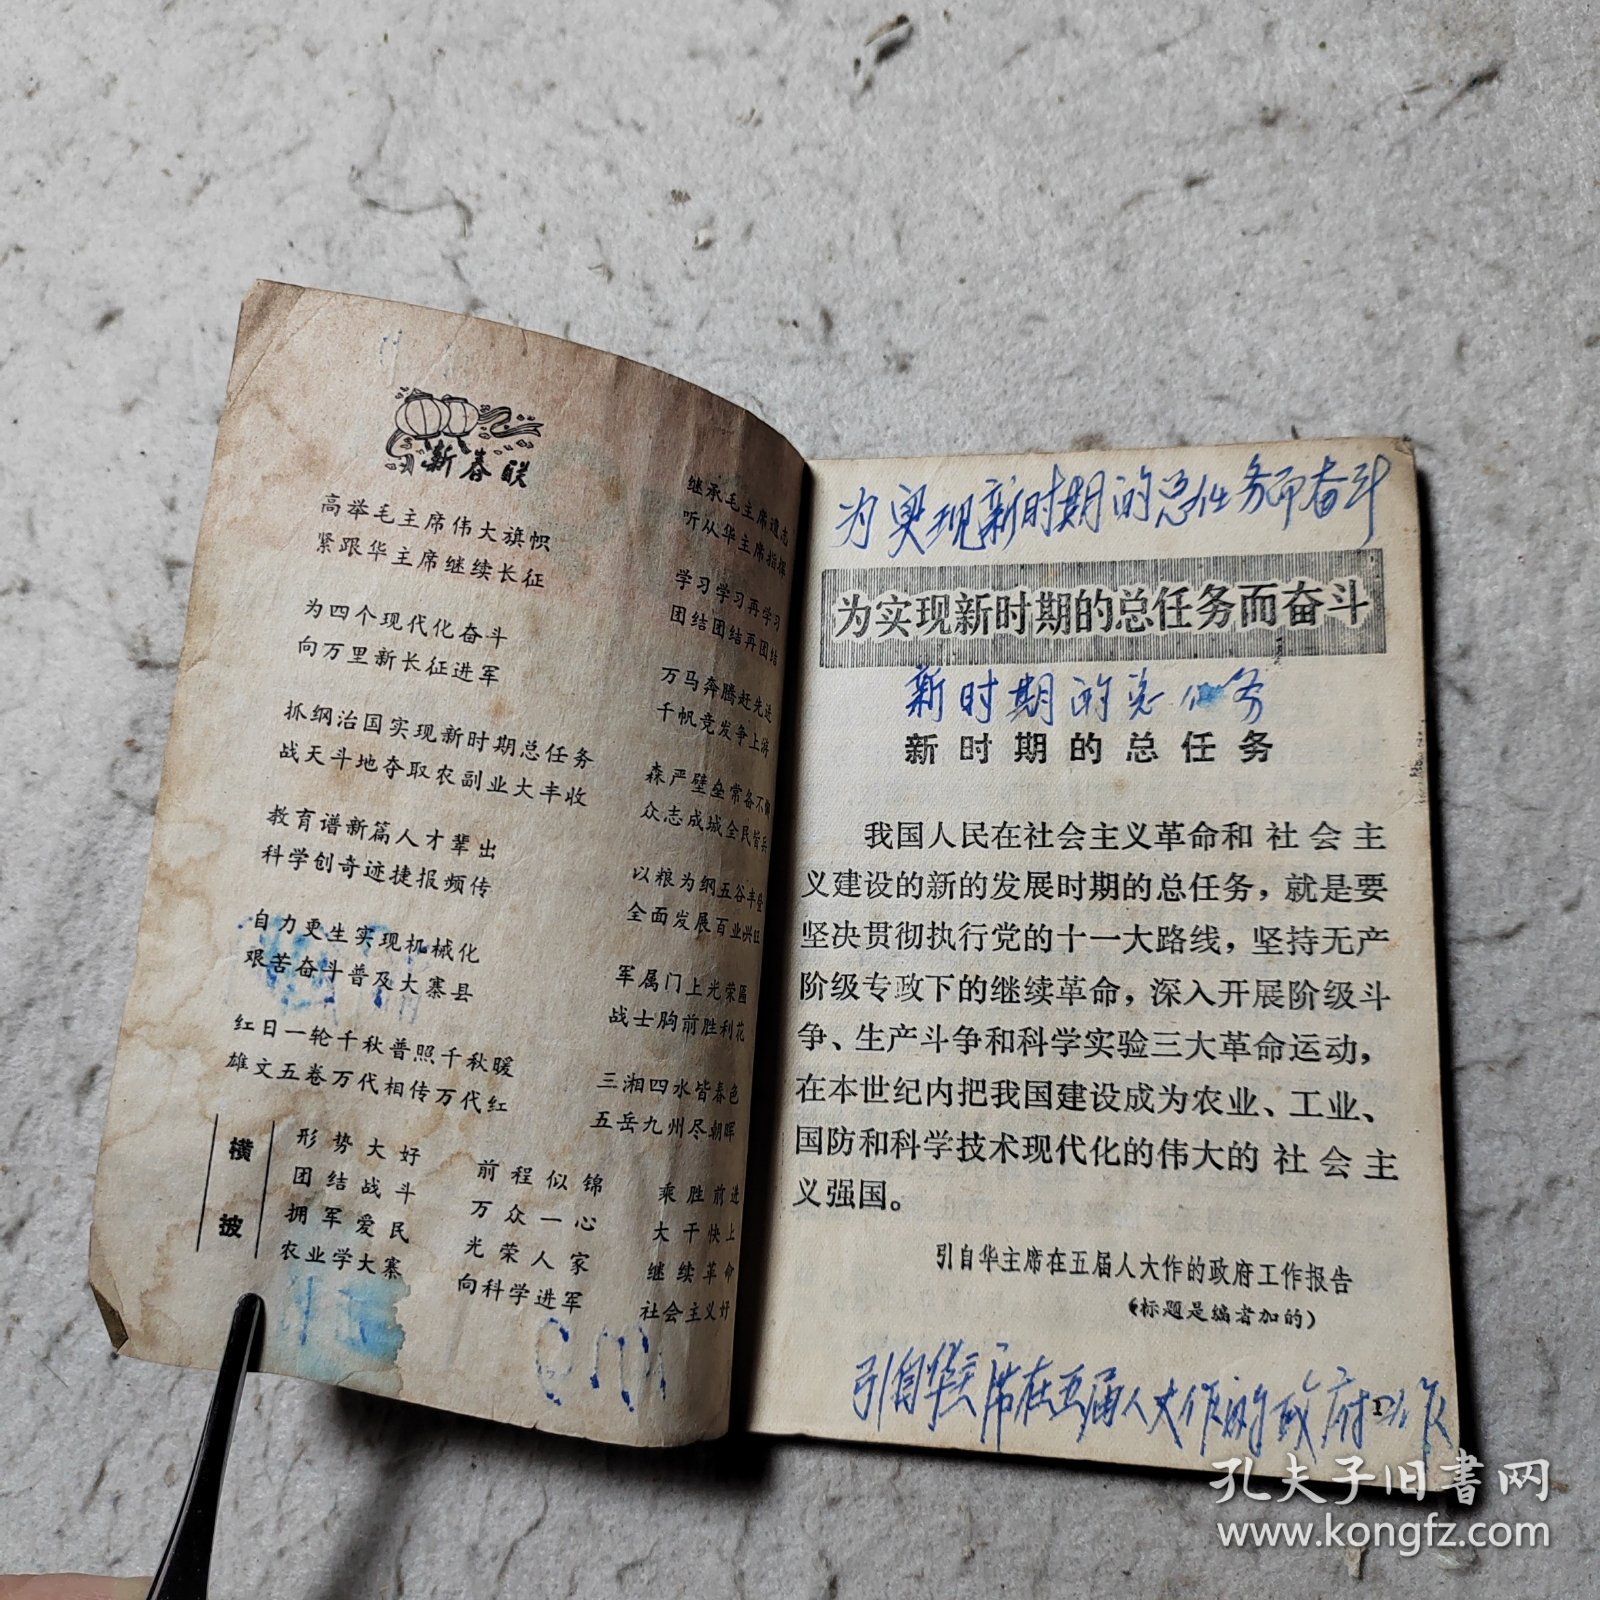 新春联
高举毛主席伟大旗帜
紧跟华主席继续长征
为四个现代化奋斗
向万里新长征进军
抓纲治国实现新时期总任务
战天斗地夺取农副业大丰收
教育谱新篇人才辈出
科学创奇迹捷报频传
自力更生实现机械化
艰苦奋斗普及大寨县
红日一轮千秋普照千秋暖
雄文五卷万代相传万代红
继承毛主席遗志
听从华主席指挥
学习学习再学习
团结团结再团结
万马奔腾赶先进
千帆竞发争上游
森严壁垒常备不懈
众志成城全民皆兵
以粮为纲五谷丰登
全面发展百业兴旺
军属门上光荣匾
战士胸前胜利花
三湘四水皆春色
五岳九州尽朝晖
横披
形势大好
团结战斗
拥军爱民
农业学大寨
前程似锦
万众一心
光荣人家
向科学进军
乘胜前进
大干快上
继续革命
社会主义好
为实现新时期的总任务而奋斗
为实现新时期的总任务而奋斗
新时期的总任务
新时期的总任务
我国人民在社会主义革命和社会主
义建设的新的发展时期的总任务，就是要
坚决贯彻执行党的十一大路线，坚持无产
阶级专政下的继续革命，深入开展阶级斗
争、生产斗争和科学实验三大革命运动，
在本世纪内把我国建设成为农业、工业、
国防和科学技术现代化的伟大的社会主
义强国。
引自华主席在五届人大作的政府工作报告
（标题是编者加的）
引自华主席在五届人大作的政府工作
1
孔夫子旧书网
www.kongfz.com